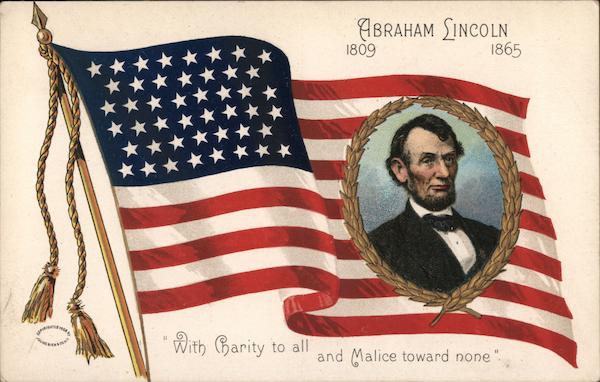 ABRAHAM LINCOLN
1809 1865
"With Charity to all and Malice toward none".